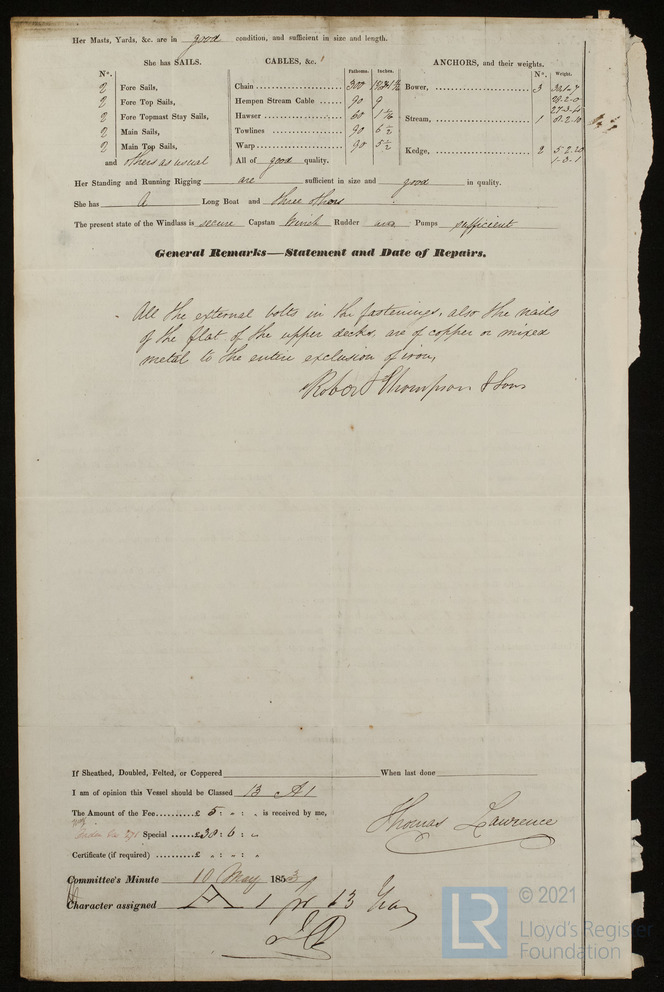 Her Masts, Yards, &c. are in good condition, and sufficient in size and length.
She has SAILS. CABLES, &c. ANCHORS, and their weights.
N°. Fathoms. Inches. N°. Weight.
2 Fore Sails, Chain 300 Bower, 3
2 Fore Top Sails, Hempen Stream Cable 90 9 28.2.0
2 Fore Topmast Stay Sails, Hawser 60 Stream, 1 8.2.10
2 Main Sails, Towlines 90 6½
2 Main Top Sails, Warp 90 5½ Kedge, 2 5.2.20
and others as usual All of good quality. 1.0.1
Her Standing and Running Rigging are sufficient in size and good in quality.
She has A Long Boat and three others
The present state of the Windlass is secure Capstan Winch Rudder and Pumps sufficient
General Remarks—Statement and Date of Repairs.
All the external bolts in the fastenings, also the nails
of the flat of the upper decks, are of copper or mixed
metal to the entire exclusion of iron,
Robert Thompson & Sons
If Sheathed, Doubled, Felted, or Coppered When last done
I am of opinion this Vessel should be Classed 13 A1
The Amount of the Fee £ 5 : „ : „ is received by me,
Thomas Lawrence
Special £38 : 6 : „
Certificate (if required) £ „ : „ : „
Committee's Minute 10 May 1853
Character assigned A 1 for 13 Years
© 2021
LR
Lloyd's Register
Foundation